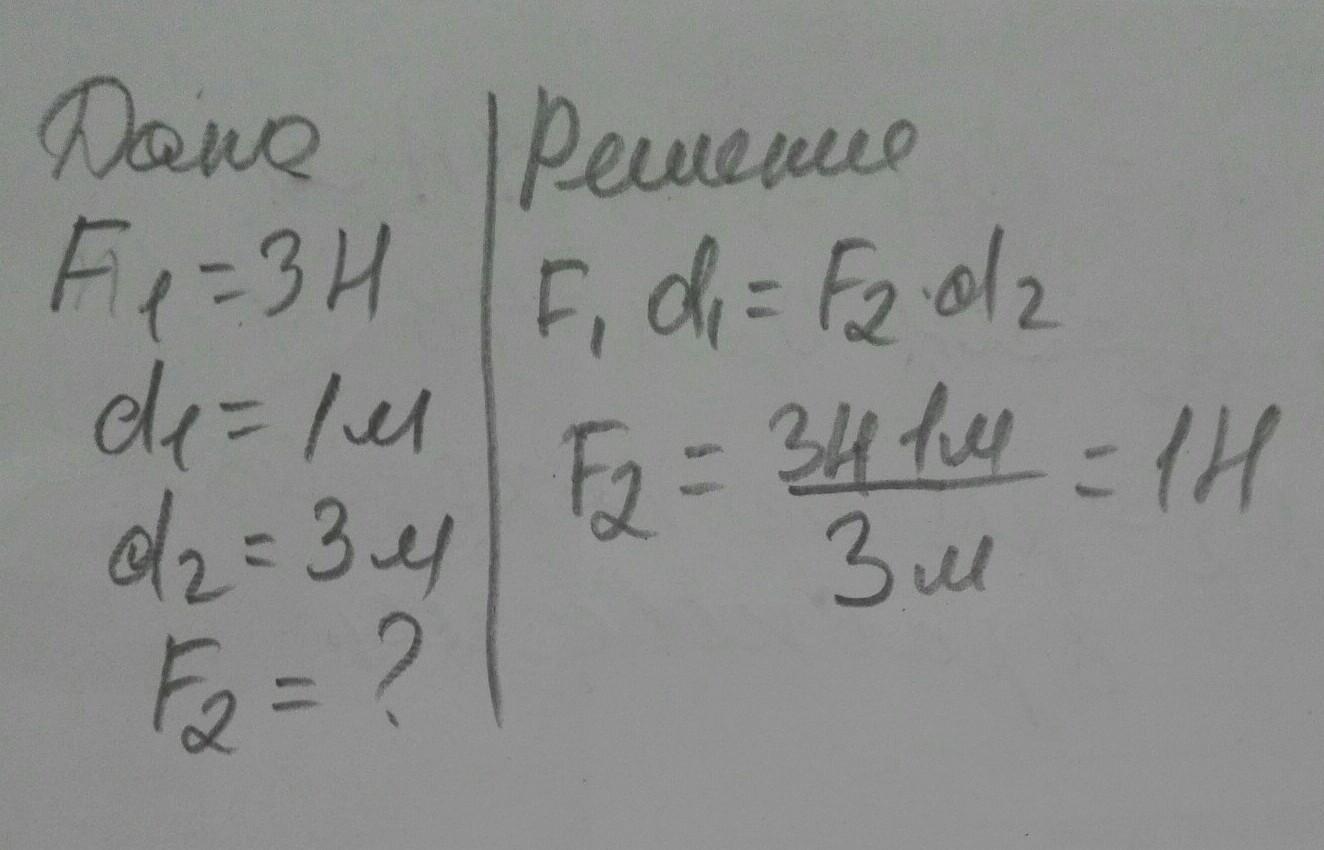 Дано
F₁ = 3 Н
d₁ = 1 м
d₂ = 3 м
F₂ = ?
Решение
F₁ d₁ = F₂ · d₂
F₂ = 3Н 1м / 3 м = 1Н